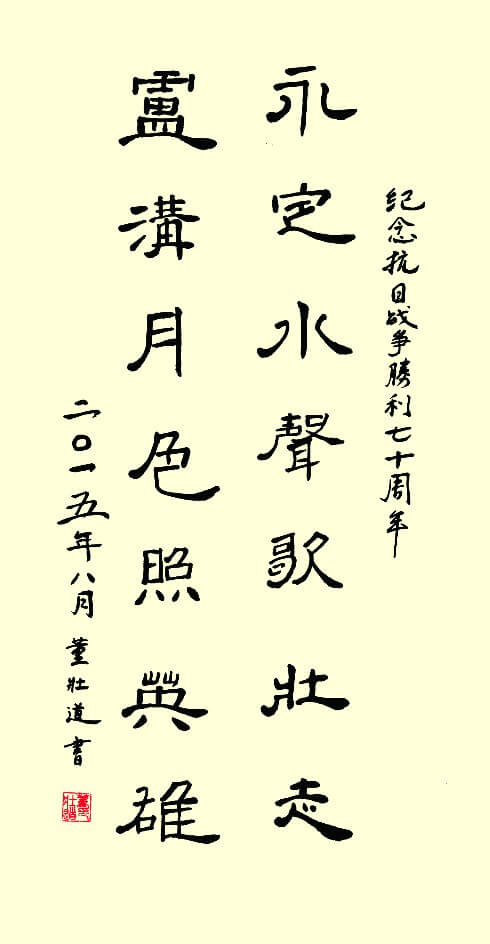 纪念抗日战争勝利七十周年
永定水聲歌壯志
盧溝月色照英雄
二〇一五年八月 董壯道書